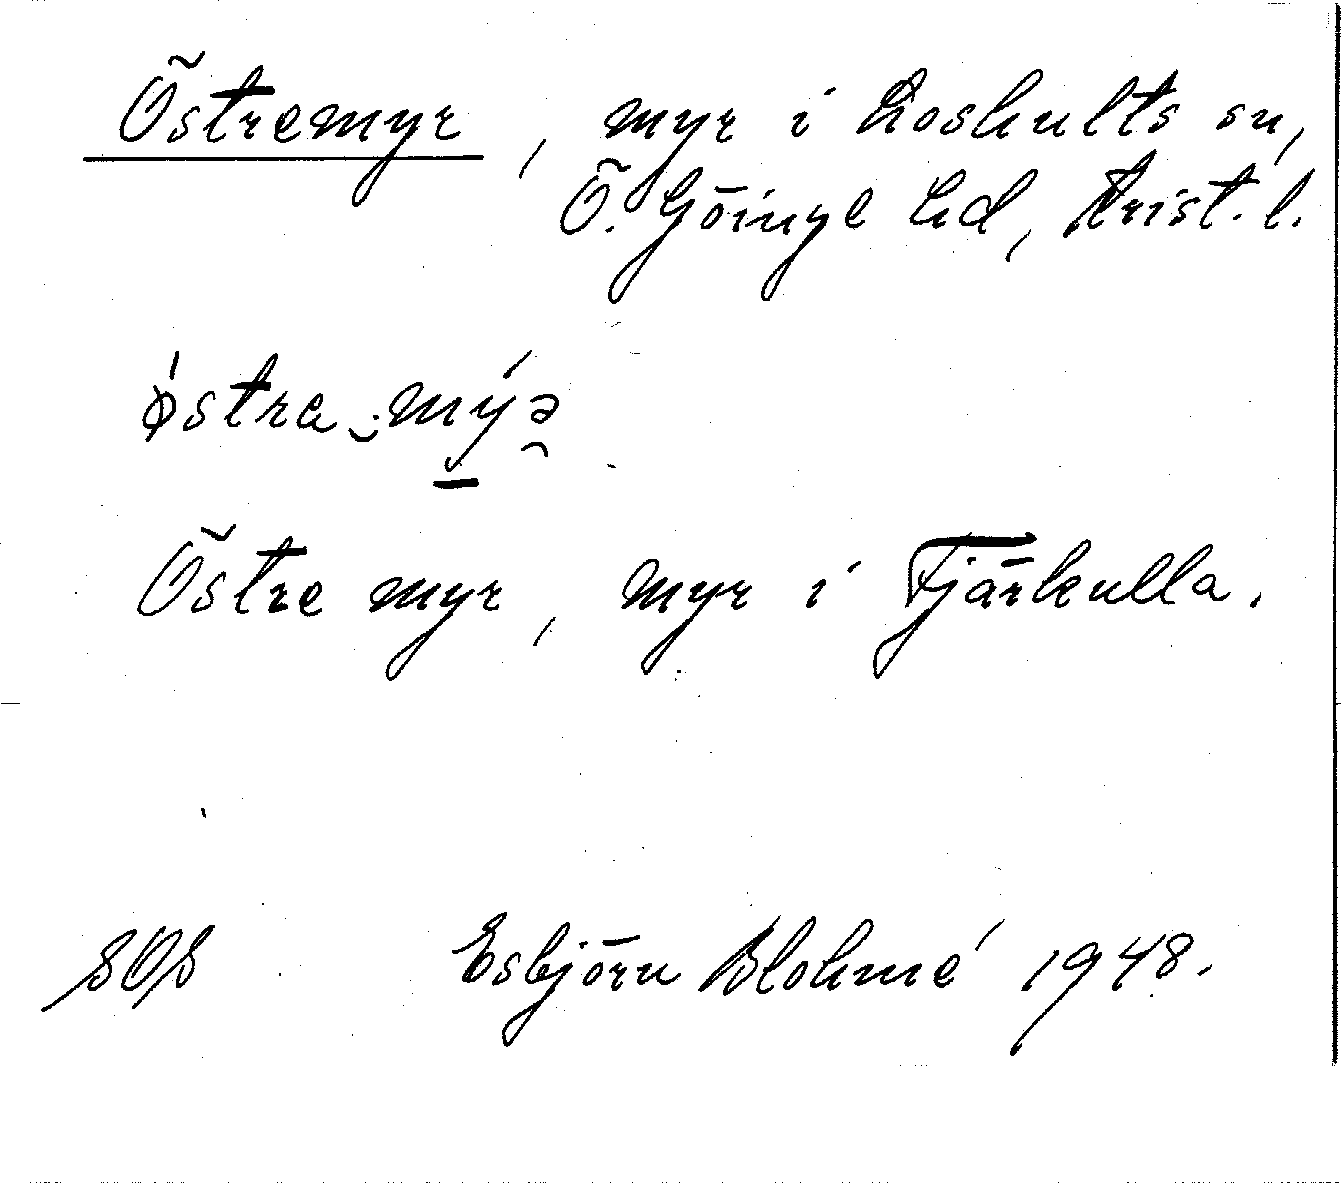 Östremyr, myr i Loshults sn,
Ö. Göinge hd, Krist. l.
östra myə
Östre myr, myr i Fjärkulla.
SOS Esbjörn Blohmé 1948.